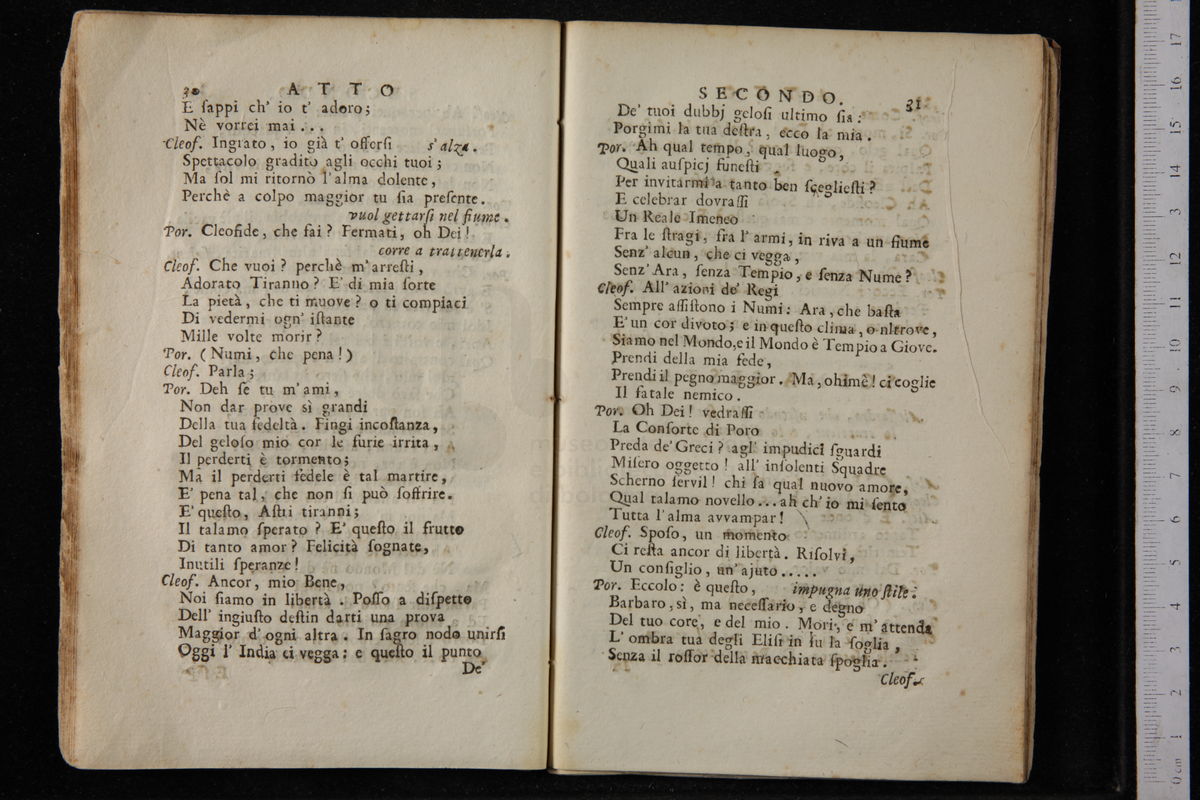 30 ATTO
E ſappi ch' io t' adoro;
Nè vorrei mai...
Cleof. Ingrato, io già t' offerſi s'alza.
Spettacolo gradito agli occhi tuoi;
Ma ſol mi ritornò l'alma dolente,
Perchè a colpo maggior tu ſia preſente.
vuol gettarſi nel fiume.
Por. Cleofide, che fai? Fermati, oh Dei!
corre a trattenerla.
Cleof. Che vuoi? perchè m'arreſti,
Adorato Tiranno? E' di mia ſorte
La pietà, che ti muove? o ti compiaci
Di vedermi ogn' iſtante
Mille volte morir?
Por. (Numi, che pena!)
Cleof. Parla;
Por. Deh ſe tu m'ami,
Non dar prove sì grandi
Della tua fedeltà. Fingi incoſtanza,
Del geloſo mio cor le furie irrita,
Il perderti è tormento;
Ma il perderti fedele è tal martire,
E' pena tal, che non ſi può ſoffrire.
E' queſto, Aſtri tiranni;
Il talamo ſperato? E' queſto il frutto
Di tanto amor? Felicità ſognate,
Inutili ſperanze!
Cleof. Ancor, mio Bene,
Noi ſiamo in libertà. Poſſo a diſpetto
Dell' ingiuſto deſtin darti una prova
Maggior d'ogni altra. In ſagro nodo unirſi
Oggi l' India ci vegga: e queſto il punto
De'
SECONDO. 31
De' tuoi dubbj geloſi ultimo ſia:
Porgimi la tua deſtra, ecco la mia.
Por. Ah qual tempo, qual luogo,
Quali auſpicj funeſti
Per invitarmi a tanto ben ſcegliеſti?
E celebrar dovraſſi
Un Reale Imeneo
Fra le ſtragi, fra l' armi, in riva a un fiume
Senz' alcun, che ci vegga,
Senz' Ara, ſenza Tempio, e ſenza Nume?
Cleof. All' azioni de' Regi
Sempre aſſiſtono i Numi: Ara, che baſta
E' un cor divoto; e in queſto clima, o altrove,
Siamo nel Mondo, e il Mondo è Tempio a Giove.
Prendi della mia fede,
Prendi il pegno maggior. Ma, ohimè! ci coglie
Il fatale nemico.
Por. Oh Dei! vedraſſi
La Conſorte di Poro
Preda de' Greci? agl' impudici ſguardi
Miſero oggetto! all' inſolenti Squadre
Scherno ſervil! chi ſa qual nuovo amore,
Qual talamo novello... ah ch' io mi ſento
Tutta l'alma avvampar!
Cleof. Spoſo, un momento
Ci reſta ancor di libertà. Riſolvi,
Un conſiglio, un' ajuto.....
Por. Eccolo: è queſto, impugna uno ſtile.
Barbaro, sì, ma neceſſario, e degno
Del tuo core, e del mio. Mori, e m'attenda
L' ombra tua degli Eliſi in ſu la ſoglia,
Senza il roſſor della macchiata ſpoglia.
Cleof.